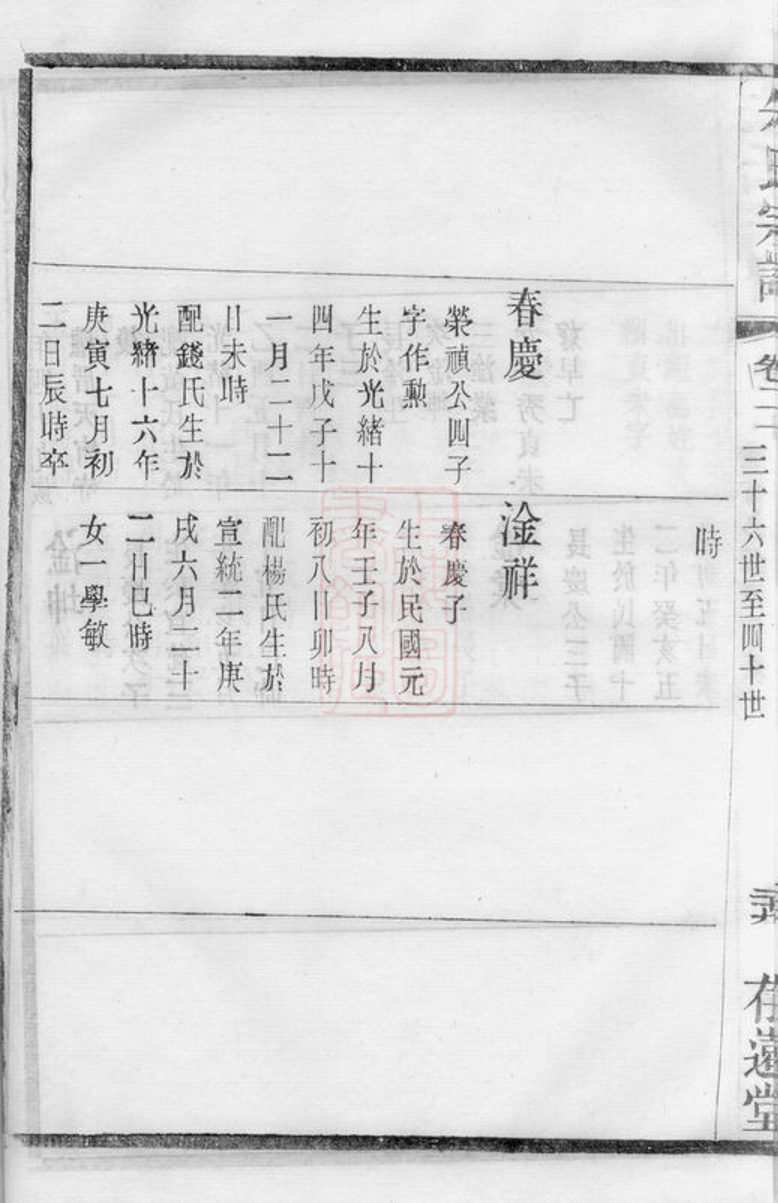 氏宗譜
卷二
三十六世至四十世
存遠堂
春慶
榮禎公四子
字作勲
生於光緒十
四年戊子十
一月二十二
日未時
配錢氏生於
光緒十六年
庚寅七月初
二日辰時卒
時
淦祥
春慶子
生於民國元
年壬子八月
初八日卯時
配楊氏生於
宣統二年庚
戌六月二十
二日巳時
女一學敏